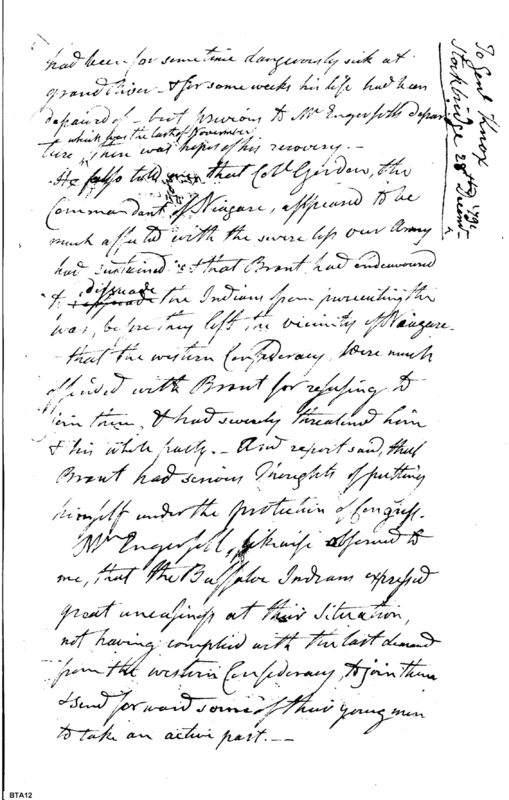 had been for some time dangerously sick at
grand River - & for some weeks his life had been
despaired of - but previous to Mr Engersolls depar
& which was the last of November
ture, there was hopes of his recovery. -
He also told me that Colo. Gordon, the
Commandant of Niagara, appeared to be
much affected with the severe loss our Army
had sustained & that Brant had endeavoured
to dissuade the Indians from prosecuting the
war, before they left the vicinity of Niagara -
- that the western Confederacy, were much
offended with Brant for refusing to
join them, & had severely threatened him
& his whole party. - And report said, that
Brant had serious Thoughts of putting
himself under the protection of Congress.
Mr Engersoll, likewise observed to
me, that the Buffaloe Indians expressed
great uneasiness at their Situation,
not having complied with the last demand
from the western Confederacy, to join them
& send forward some of their young men
to take an active part. --
To Genl Knox
Stockbridge 28th Decemr
BTA12